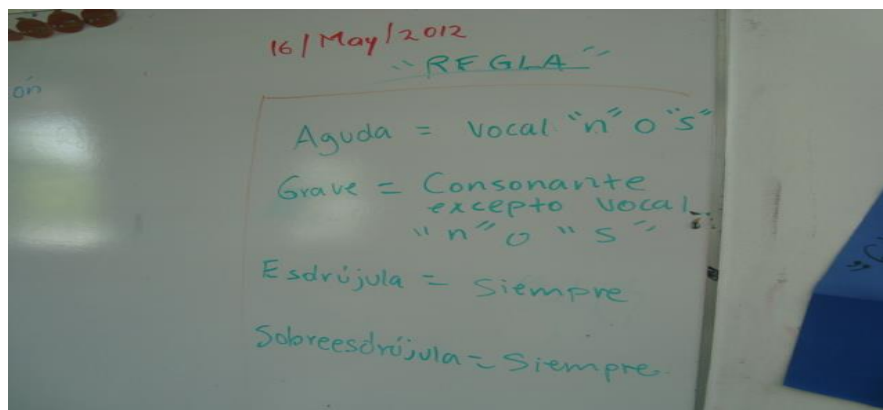 16/May/2012
"REGLA"
ón
Aguda = Vocal "n" o "s"
Grave = Consonante
excepto vocal
"n" o "s"
Esdrújula = Siempre
Sobreesdrújula = Siempre.